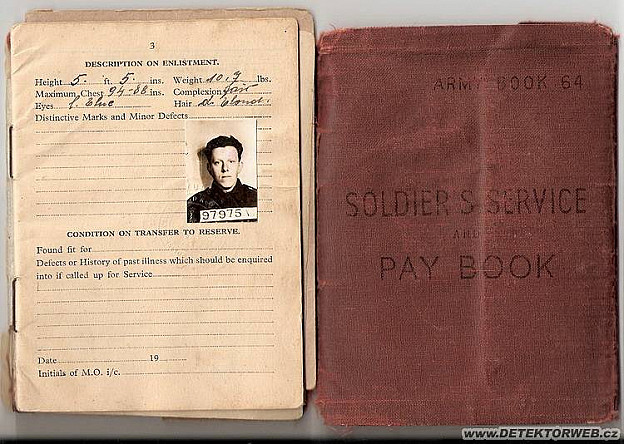 3
DESCRIPTION ON ENLISTMENT.
Height 5 ft. 5 ins. Weight 10.9 lbs.
Maximum Chest 94-88 ins. Complexion fair
Eyes l. blue Hair d. blond.
Distinctive Marks and Minor Defects
97975
CONDITION ON TRANSFER TO RESERVE.
Found fit for
Defects or History of past illness which should be enquired
into if called up for Service
Date 19
Initials of M.O. i/c.
ARMY BOOK 64
SOLDIER'S SERVICE
AND
PAY BOOK
WWW.DETEKTORWEB.cz